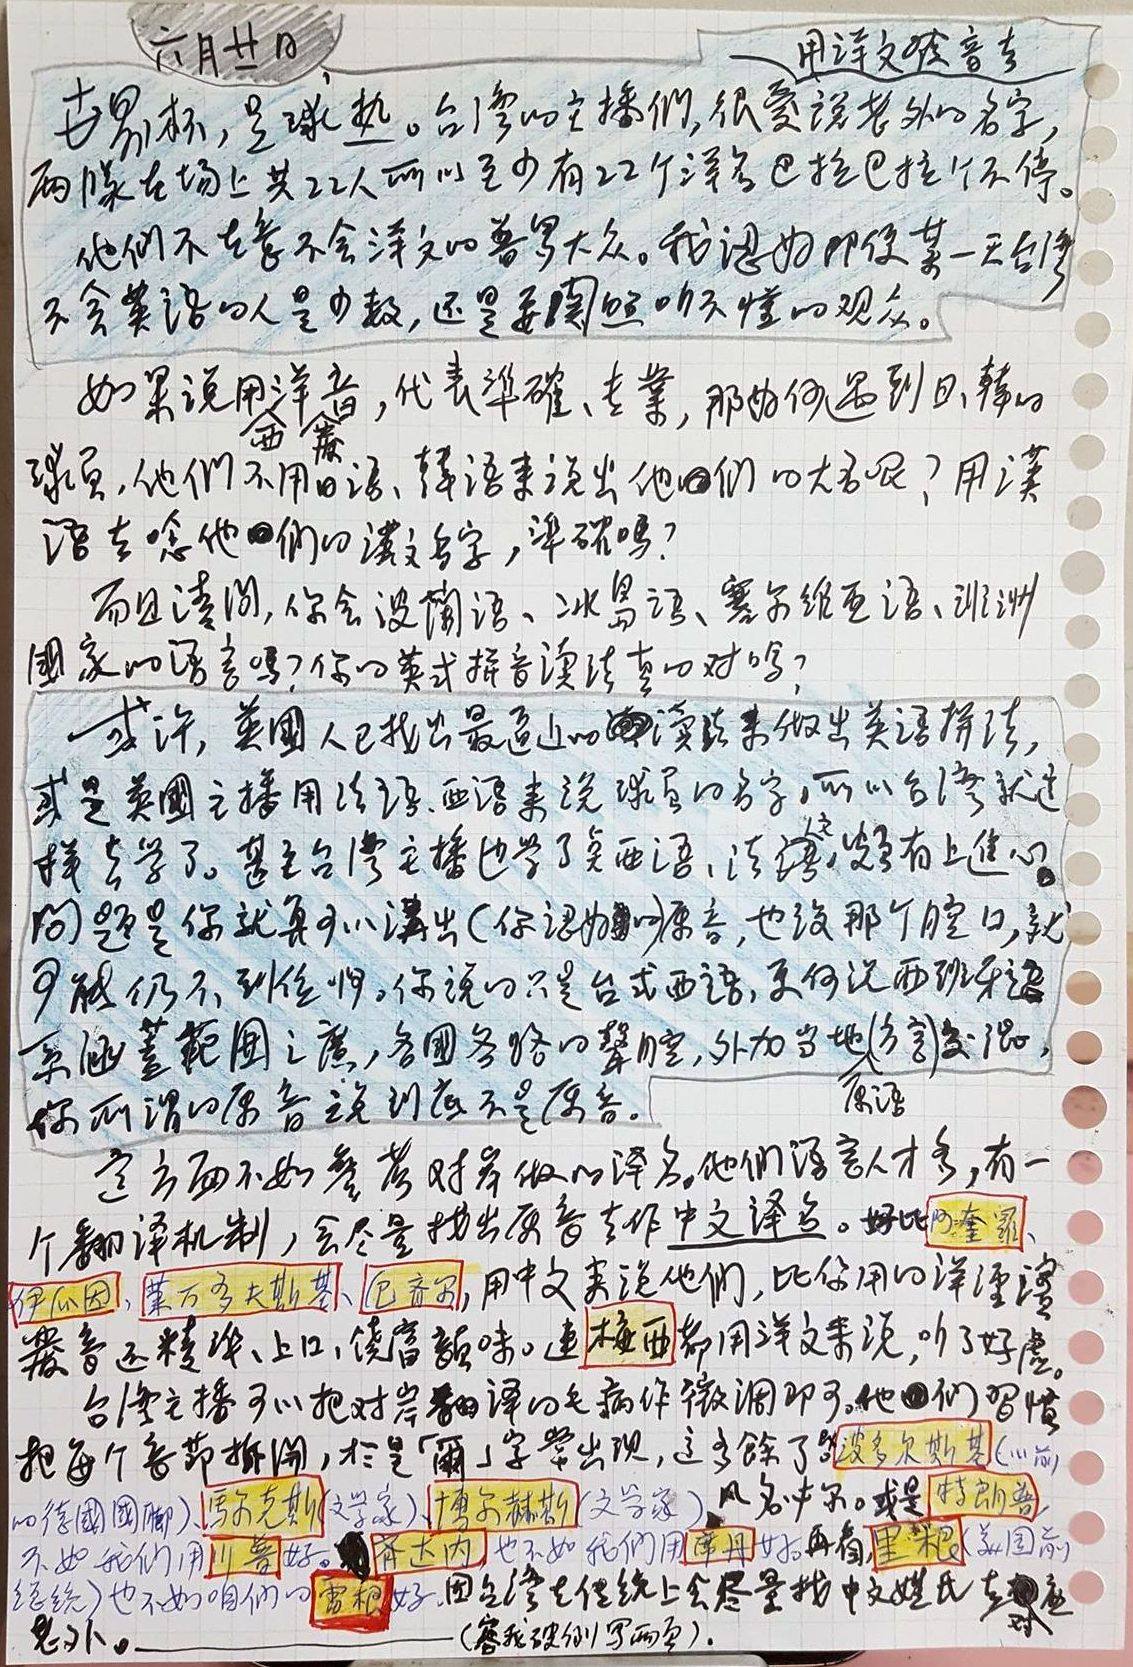 六月廿日
用洋文發音去
世界杯，是球热。台湾的主播們，很愛说老外的名字，
兩隊在场上共22人所以至少有22个洋名巴拉巴拉个不停。
他們不在意不会洋文的普羅大众。我認為即使某一天台湾
不会英语的人是少数，还是要関照听不懂的观众。
如果说用洋音，代表準確、专業，那為何遇到日、韓的
球員，他們不用日语、韓语来说出他們的大名呢？用漢
语去唸他們的漢文名字，準確嗎？
而且请问，你会波蘭语、冰島语、塞尔维亚语、非洲
國家的语言嗎？你的英式拼音讀法真的对嗎？
或许，英國人已找出最逼近的讀法来做出英语拼法，
或是英國主播用法语、西语来说球員的名字，所以台湾就这
样去学了。甚至台湾主播也学了点西语、法语，頗有上進心。
问题是你就真可以講出(你認為的)原音，也没那个腔口，就
可能仍不到位啊。你说的只是台式西语，更何况西班牙语
系涵蓋範圍之廣，各國各路的聲腔，外加当地(方言)交混，
原语
你所谓的原音说到底不是原音。
这方面不如參考对岸做的译名。他們语言人才多，有一
个翻译机制，会尽量找出原音去作中文译名。好比阿奎羅、
伊瓜因、莱万多夫斯基、巴音尔，用中文来说他們，比你用的洋涇濱
發音还精准、上口、饒富韻味。連梅西都用洋文来说，听了好虚。
台湾主播可以把对岸翻译的毛病作微调即可。他們習慣
把每个音节拆開，於是「爾」字常出现，这多餘了。波多尔斯基(以前
的德國國腳)、馬尔克斯(文学家)、博尔赫斯(文学家)，凡名中尔。或是特朗普，
不如我們用川普好。齐达内也不如我們用席丹好。再看，里根(美国前
總统)也不如咱們的雷根好，因台湾在传统上会尽量找中文姓氏去对应
老外。(容我破例写两頁)。